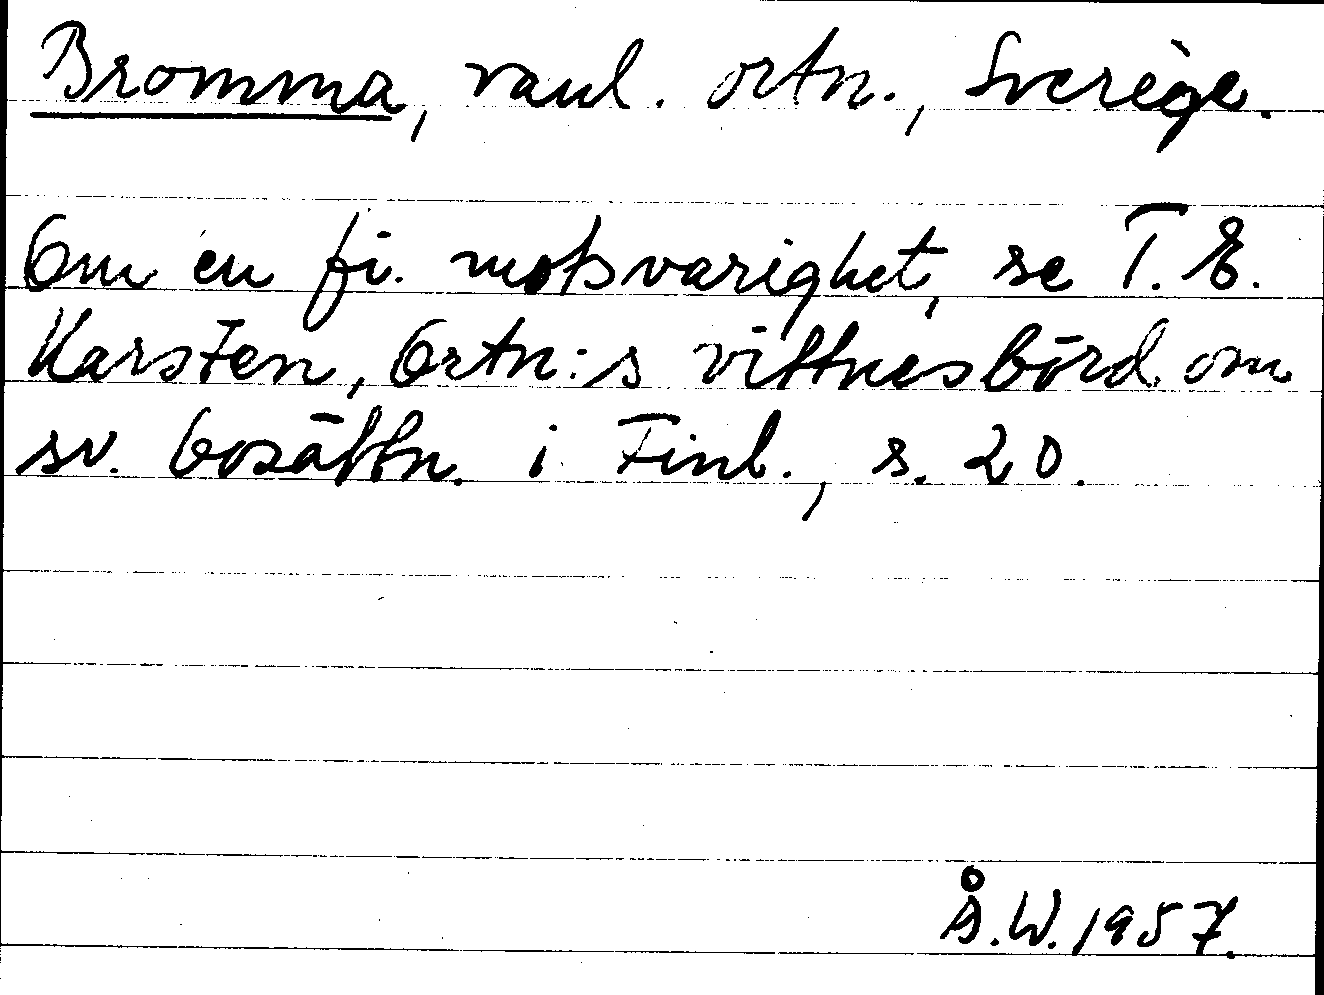 Bromma, vanl. ortn., Sverige.
Om en fi. motsvarighet, se T. E.
Karsten, Ortn:s vittnesbörd om
sv. bosättn. i Finl., s. 20.
Å.W. 1957.